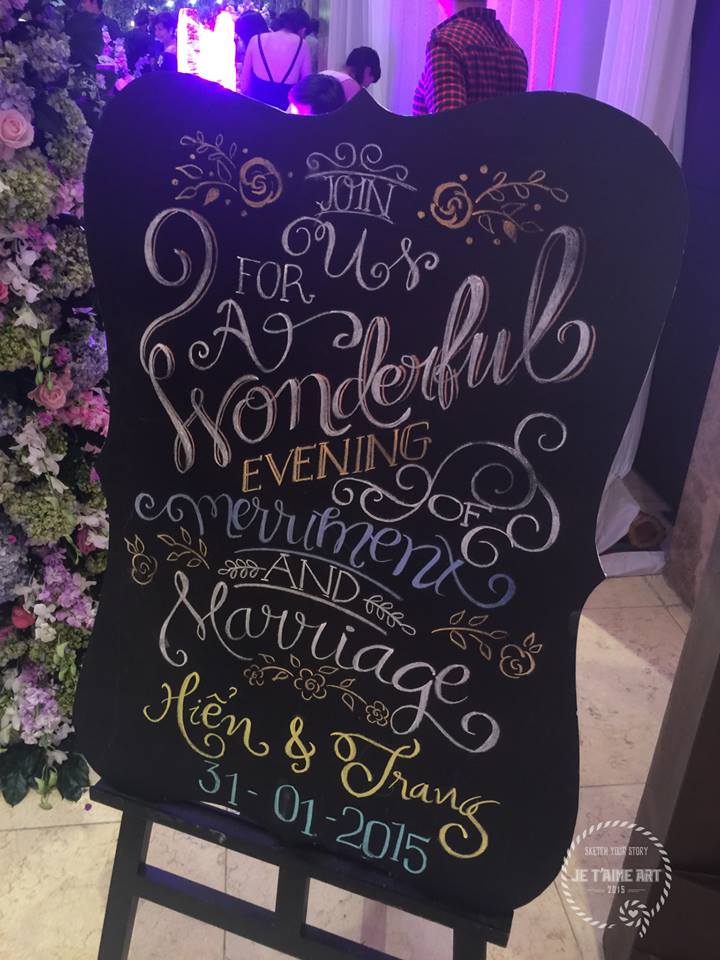 JOIN
Us
FOR
A
Wonderful
EVENING
OF
Merriment
AND
Marriage
Hiển & Trang
31-01-2015
SKETCH YOUR STORY
JE T'AIME ART
2015